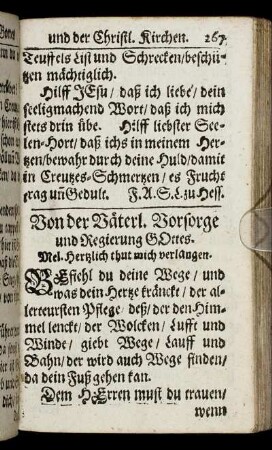 und der Christl. Kirchen. 267
Teuffels List und Schrecken/beschü-
tzen mächtiglich.
Hilff JEsu/ daß ich liebe/ dein
seeligmachend Wort/ daß ich mich
stets drin übe. Hilff liebster See-
len-Hort/ daß ichs in meinem Her-
tzen/bewahr durch deine Huld/damit
in Creutzes-Schmertzen/ es Frucht
trag uñ Gedult. F. A. S. L. zu Hess.
Von der Väterl. Vorsorge
und Regierung GOttes.
Mel. Hertzlich thut mich verlangen.
BEfiehl du deine Wege/ und
was dein Hertze kräncket/ der al-
lertreursten Pflege/ deß/ der den Him-
mel lencket/ der Wolcken/ Lufft und
Winde/ giebt Wege/ Lauff und
Bahn/ der wird auch Wege finden/
da dein Fuß gehen kan.
Dem HErren must du trauen/
wenn